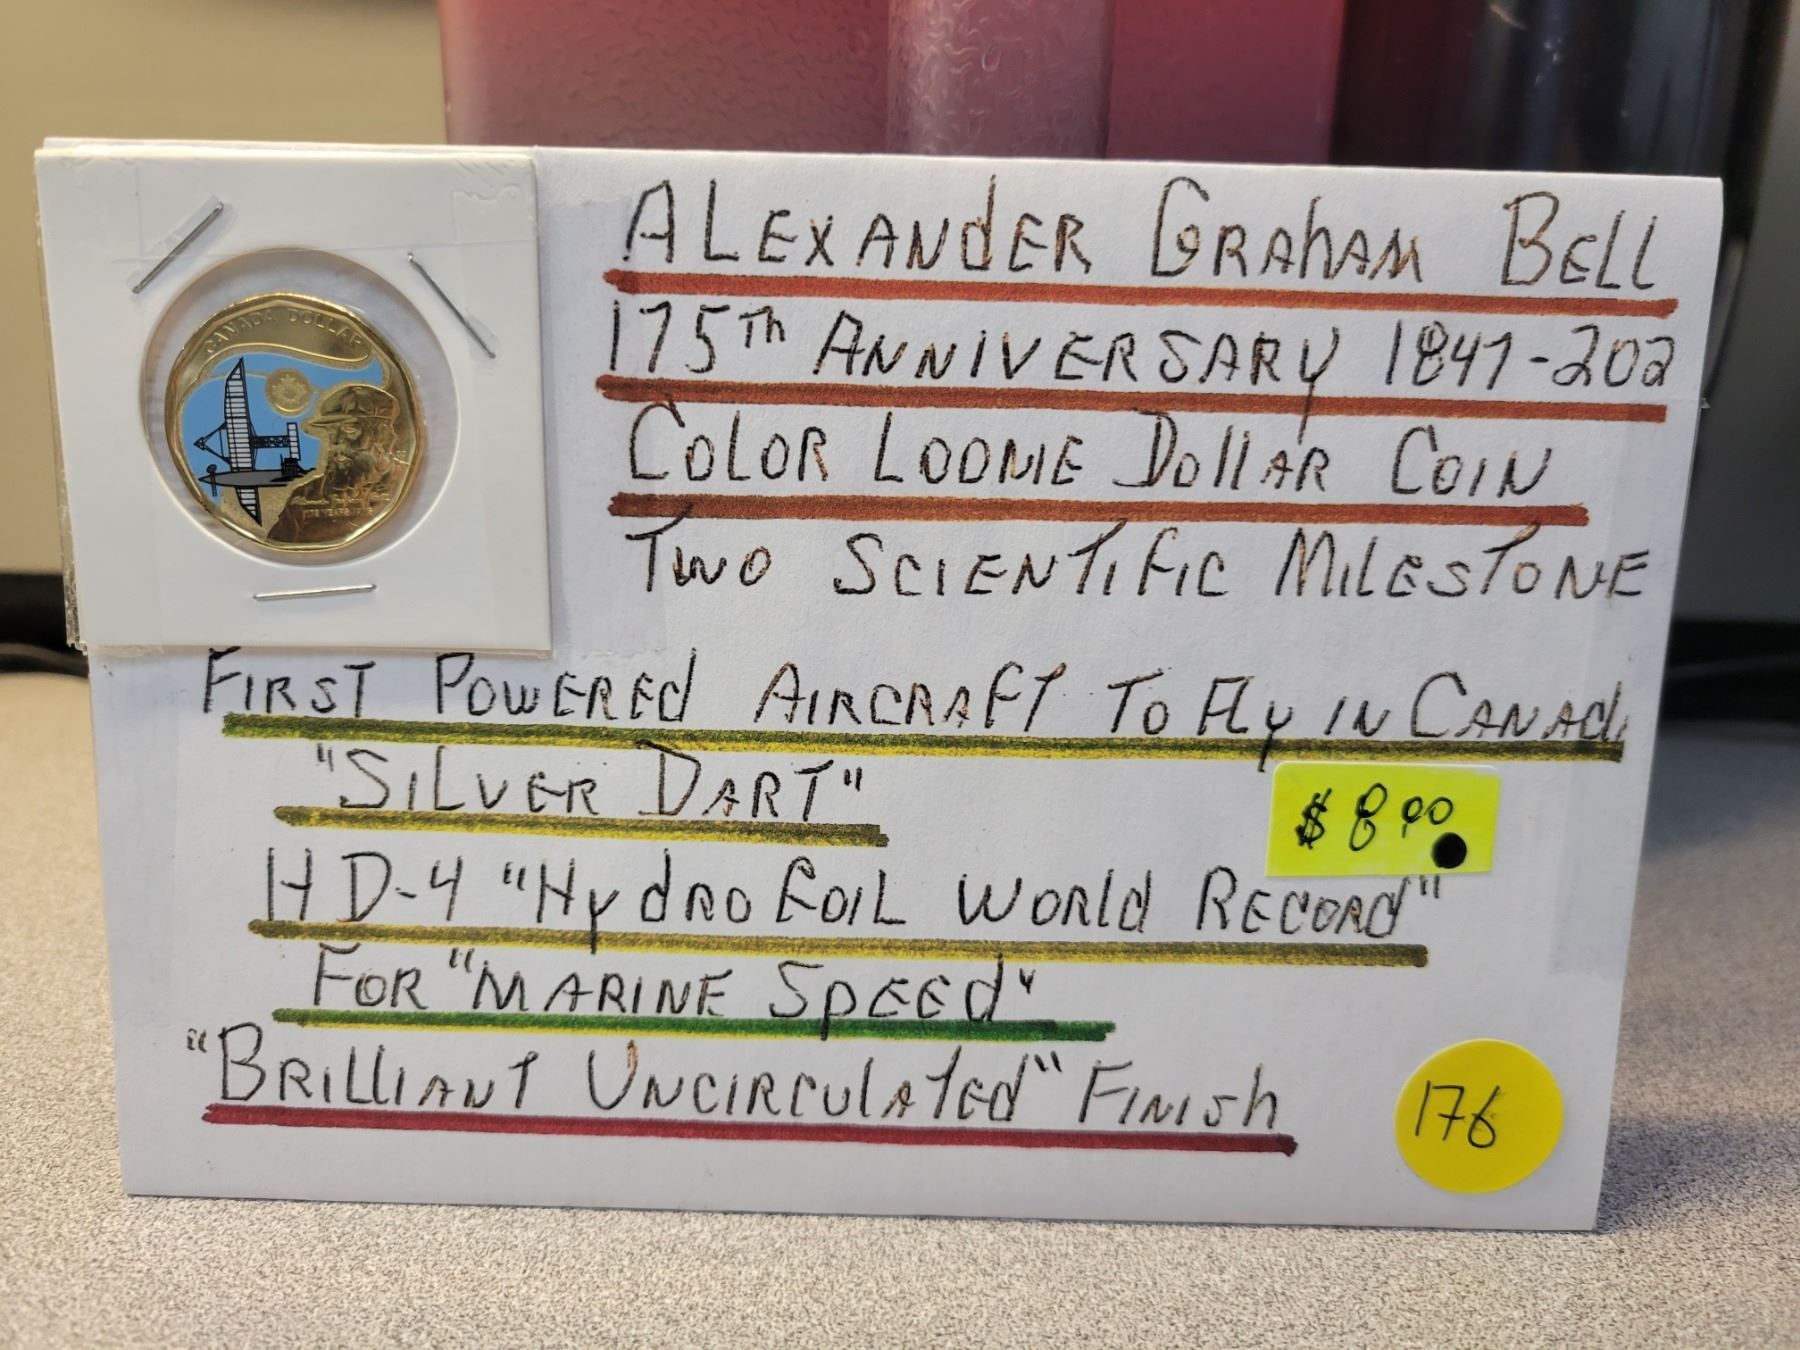 CANADA DOLLAR
175 YEARS/ANS
ALEXANdER GRAhAM BELL
175Th ANNIVERSARY 1847-202
COLOR LOONIE DOllAR COIN
TWO SCIENTIFIC MILESTONE
FIRST POWERED AIRCRAFT TO FLy IN CANAd
"SILVER DART"
$8.00
HD-4 "HydROFOIL WORLd RECORd"
FOR "MARINE SpEEd"
"BRILLIANT UNCIRCULATEd" FINISh
176